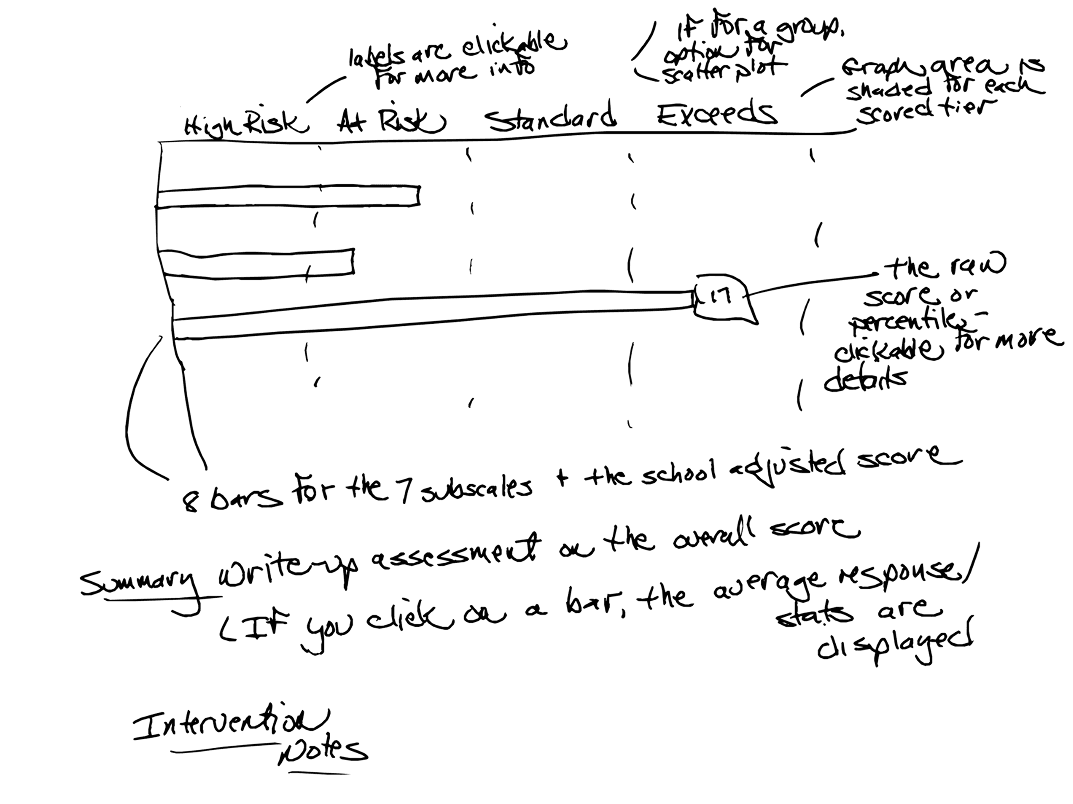 labels are clickable
for more info
if for a group,
option for
scatter plot
Graph area is
shaded for each
scored tier
High Risk At Risk Standard Exceeds
17
the raw
score or
percentile -
clickable for more
details
8 bars for the 7 subscales + the school adjusted score
Summary Write-up assessment on the overall score
(If you click on a bar, the average response/
stats are
displayed
Intervention
Notes